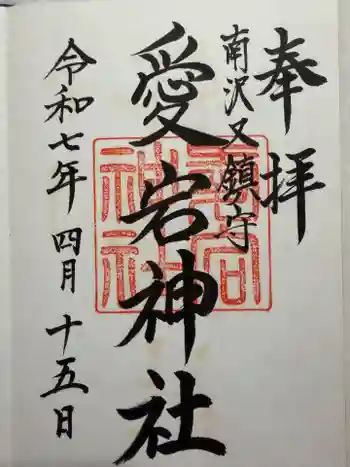 奉拝
南沢又鎮守
愛宕神社
令和七年四月十五日